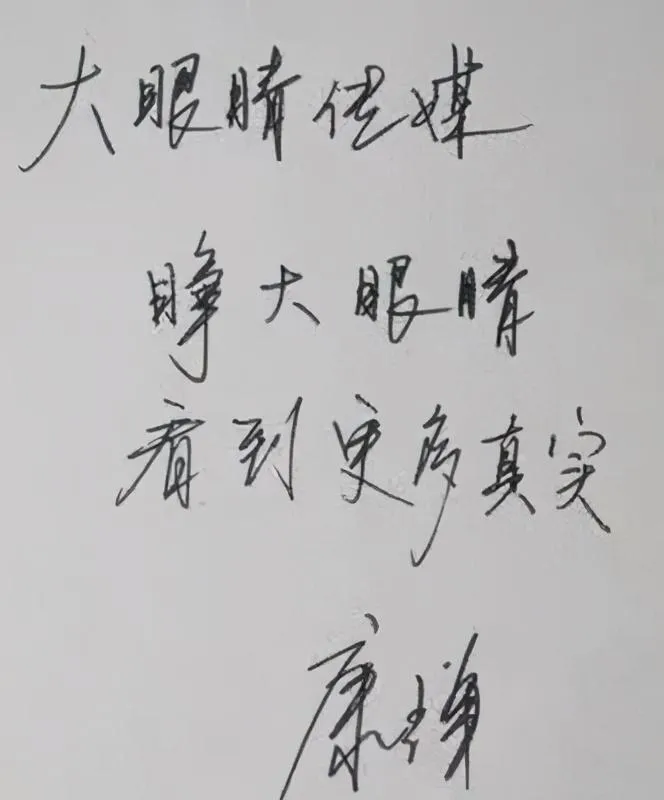 大眼睛传媒
睁大眼睛
看到更多真实
康辉